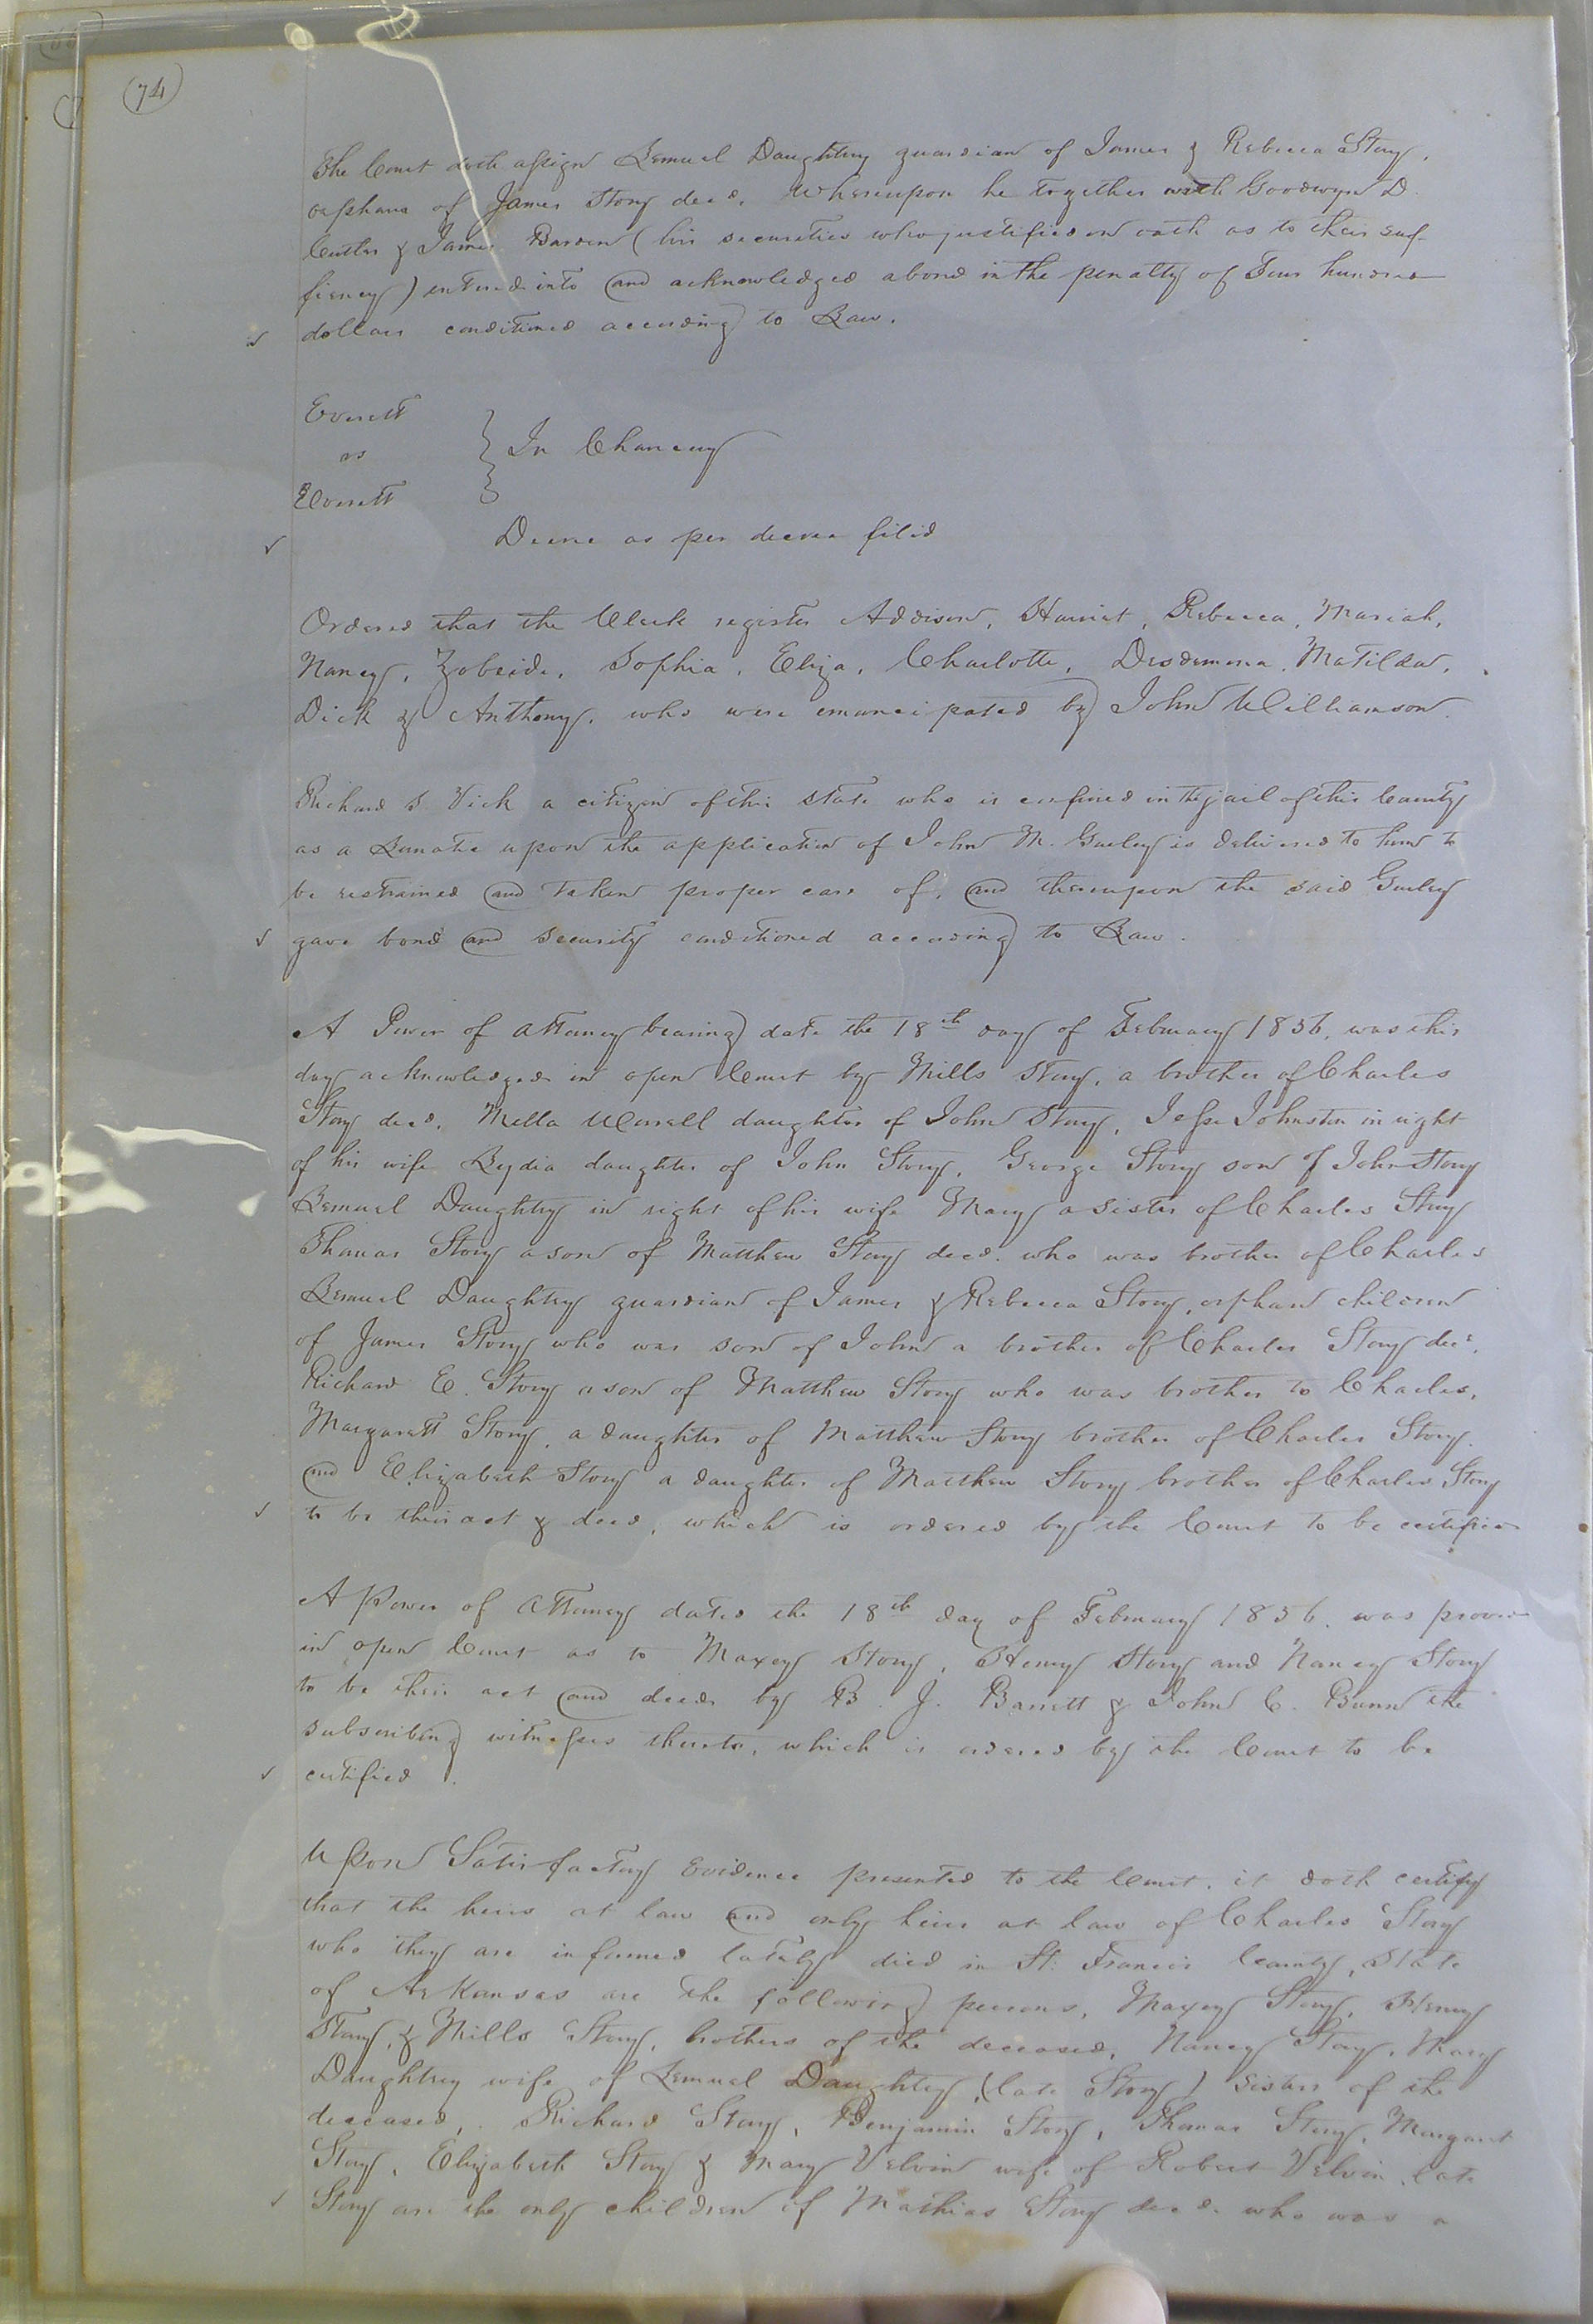 (74)
The Court doth assign Lemuel Daughtrey guardian of James & Rebecca Story,
orphans of James Story decd. Whereupon he together with Goodwyn D.
Cutler & James Barden (his securities who justified on oath as to their suf-
ficiency) entered into and acknowledged a bond in the penalty of Four hundred
dollars conditioned according to Law.
Everett
vs
Everett
} In Chancery
Decree as per decree filed
Ordered that the Clerk register Addison, Harriet, Rebecca, Mariah,
Nancy, Zobeide, Sophia, Eliza, Charlotte, Desdemona, Matilda,
Dick & Anthony, who were emancipated by John Williamson.
Richard S. Vick a citizen of this state who is confined in the jail of this County
as a Lunatic upon the application of John M. Gurley is delivered to him to
be restrained and taken proper care of, and thereupon the said Gurley
gave bond and security conditioned according to Law.
A Power of Attorney bearing date the 18th day of February 1856, was this
day acknowledged in open Court by Mills Story, a brother of Charles
Story decd, Mella Worrell daughter of John Story, Jesse Johnston in right
of his wife Lydia daughter of John Story, George Story son of John Story
Lemuel Daughtry in right of his wife Mary a sister of Charles Story
Thomas Story a son of Matthew Story decd. who was brother of Charles
Lemuel Daughtry guardian of James & Rebecca Story, orphan children
of James Story who was son of John a brother of Charles Story decd.
Richard E. Story a son of Matthew Story who was brother to Charles,
Margarett Story, a daughter of Matthew Story brother of Charles Story.
and Elizabeth Story a daughter of Matthew Story brother of Charles Story
to be their act & deed, which is ordered by the Court to be certified
A Power of Attorney dated the 18th day of February 1856. was proven
in open Court as to Maxey Story, Henry Story and Nancy Story
to be their act and deed by B. J. Barrett & John C. Bunn the
subscribing witnesses thereto, which is ordered by the Court to be
certified.
Upon Satisfactory Evidence presented to the Court, it doth certify
that the heirs at law and only heirs at law of Charles Story
who they are informed lately died in St. Francis County, State
of Arkansas are the following persons, Maxey Story, Henry
Story, & Mills Story, brothers of the deceased, Nancy Story, Mary
Daughtrey wife of Lemuel Daughtry, (late Story) Sisters of the
deceased, Richard Story, Benjamin Story, Thomas Story, Margaret
Story, Elizabeth Story & Mary Velvin wife of Robert Velvin, late
Story are the only children of Mathias Story decd. who was a